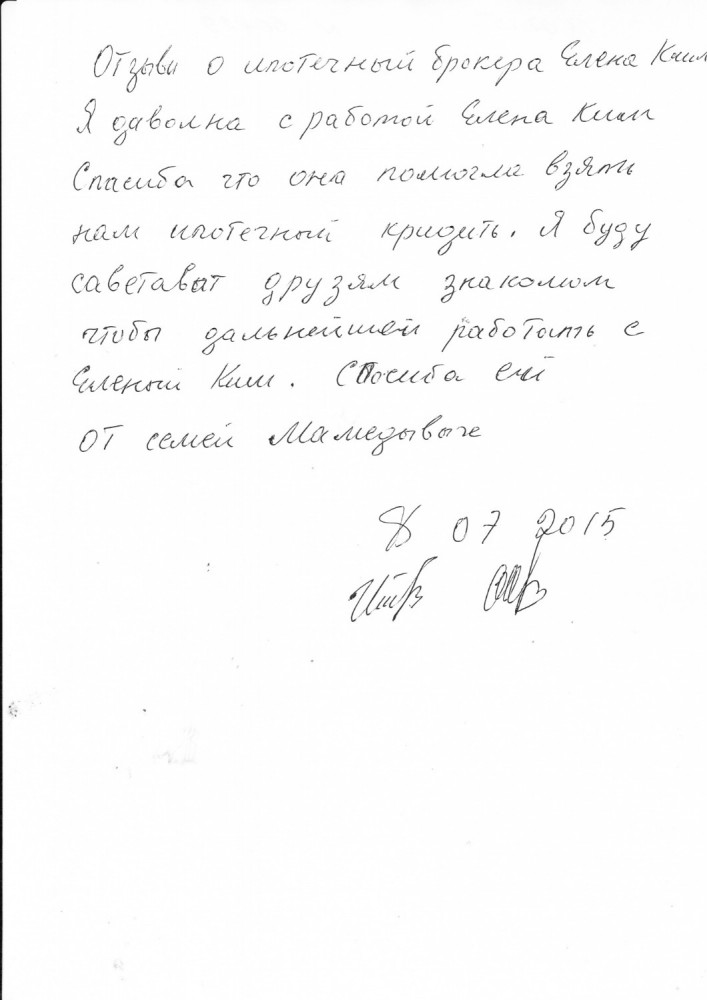 Отзыви о ипотечный брокера Елена Ким
Я даволна с работой Елена Ким
Спасиба что она помогла взять
нам ипотечный кридить. Я буду
саветават друзям знакомым
чтобы дальнейшей работать с
Еленый Ким. Спосиба ей
от семей Мамедывыче
8 07 2015